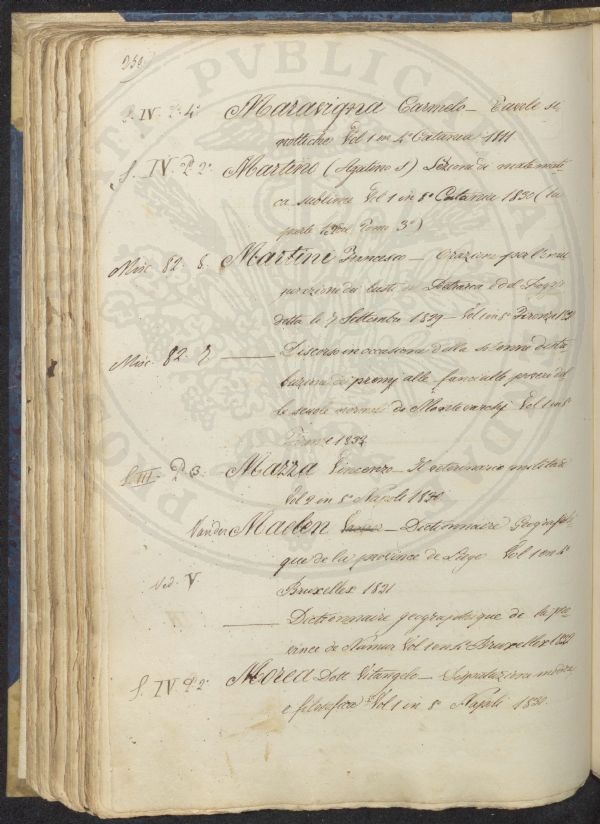 250
S. IV. P. 4° Maravigna Carmelo – Tavole si
nottiche Vol 1 in 4° Catania 1811
S. IV. P. 2° Martino (Agatino S) Lezioni di matemati
ca sublime Vol 1 in 8° Catania 1830 (
parte Tomo 3°)
Misc. 82. 8. Martini Francesco – Orazioni per l'inau
gurazione di busti di Petrarca e del
detta le 7 Settembre 1839 – Vol 1 in 8° Firenze 1839
Misc. 82. 7 —— Discorso in occasione della solenne distri
buzione di premj alle fanciulle povere del
le scuole normali di Montevarchj Vol 1 in 8°
Firenze 1832
S. III. P. 3. Mazza Vincenzo – Il veterinario militare
Vol 2 in 8° Napoli 1830
Vander Maelen – Dictionnaire Geografi
que de la province de Liege Vol 1 in 8°
Ved. V. Bruxelles 1831
—— Dictionnaire geographique de la pro
vince de Namur Vol 1 in 8° Bruxelles 1832
S. IV. P. 2° Morea Dott. Vitangelo – medica
e filosofica Vol 1 in 8° Napoli 1830.
PVBLICAE VTILITATI
PRO